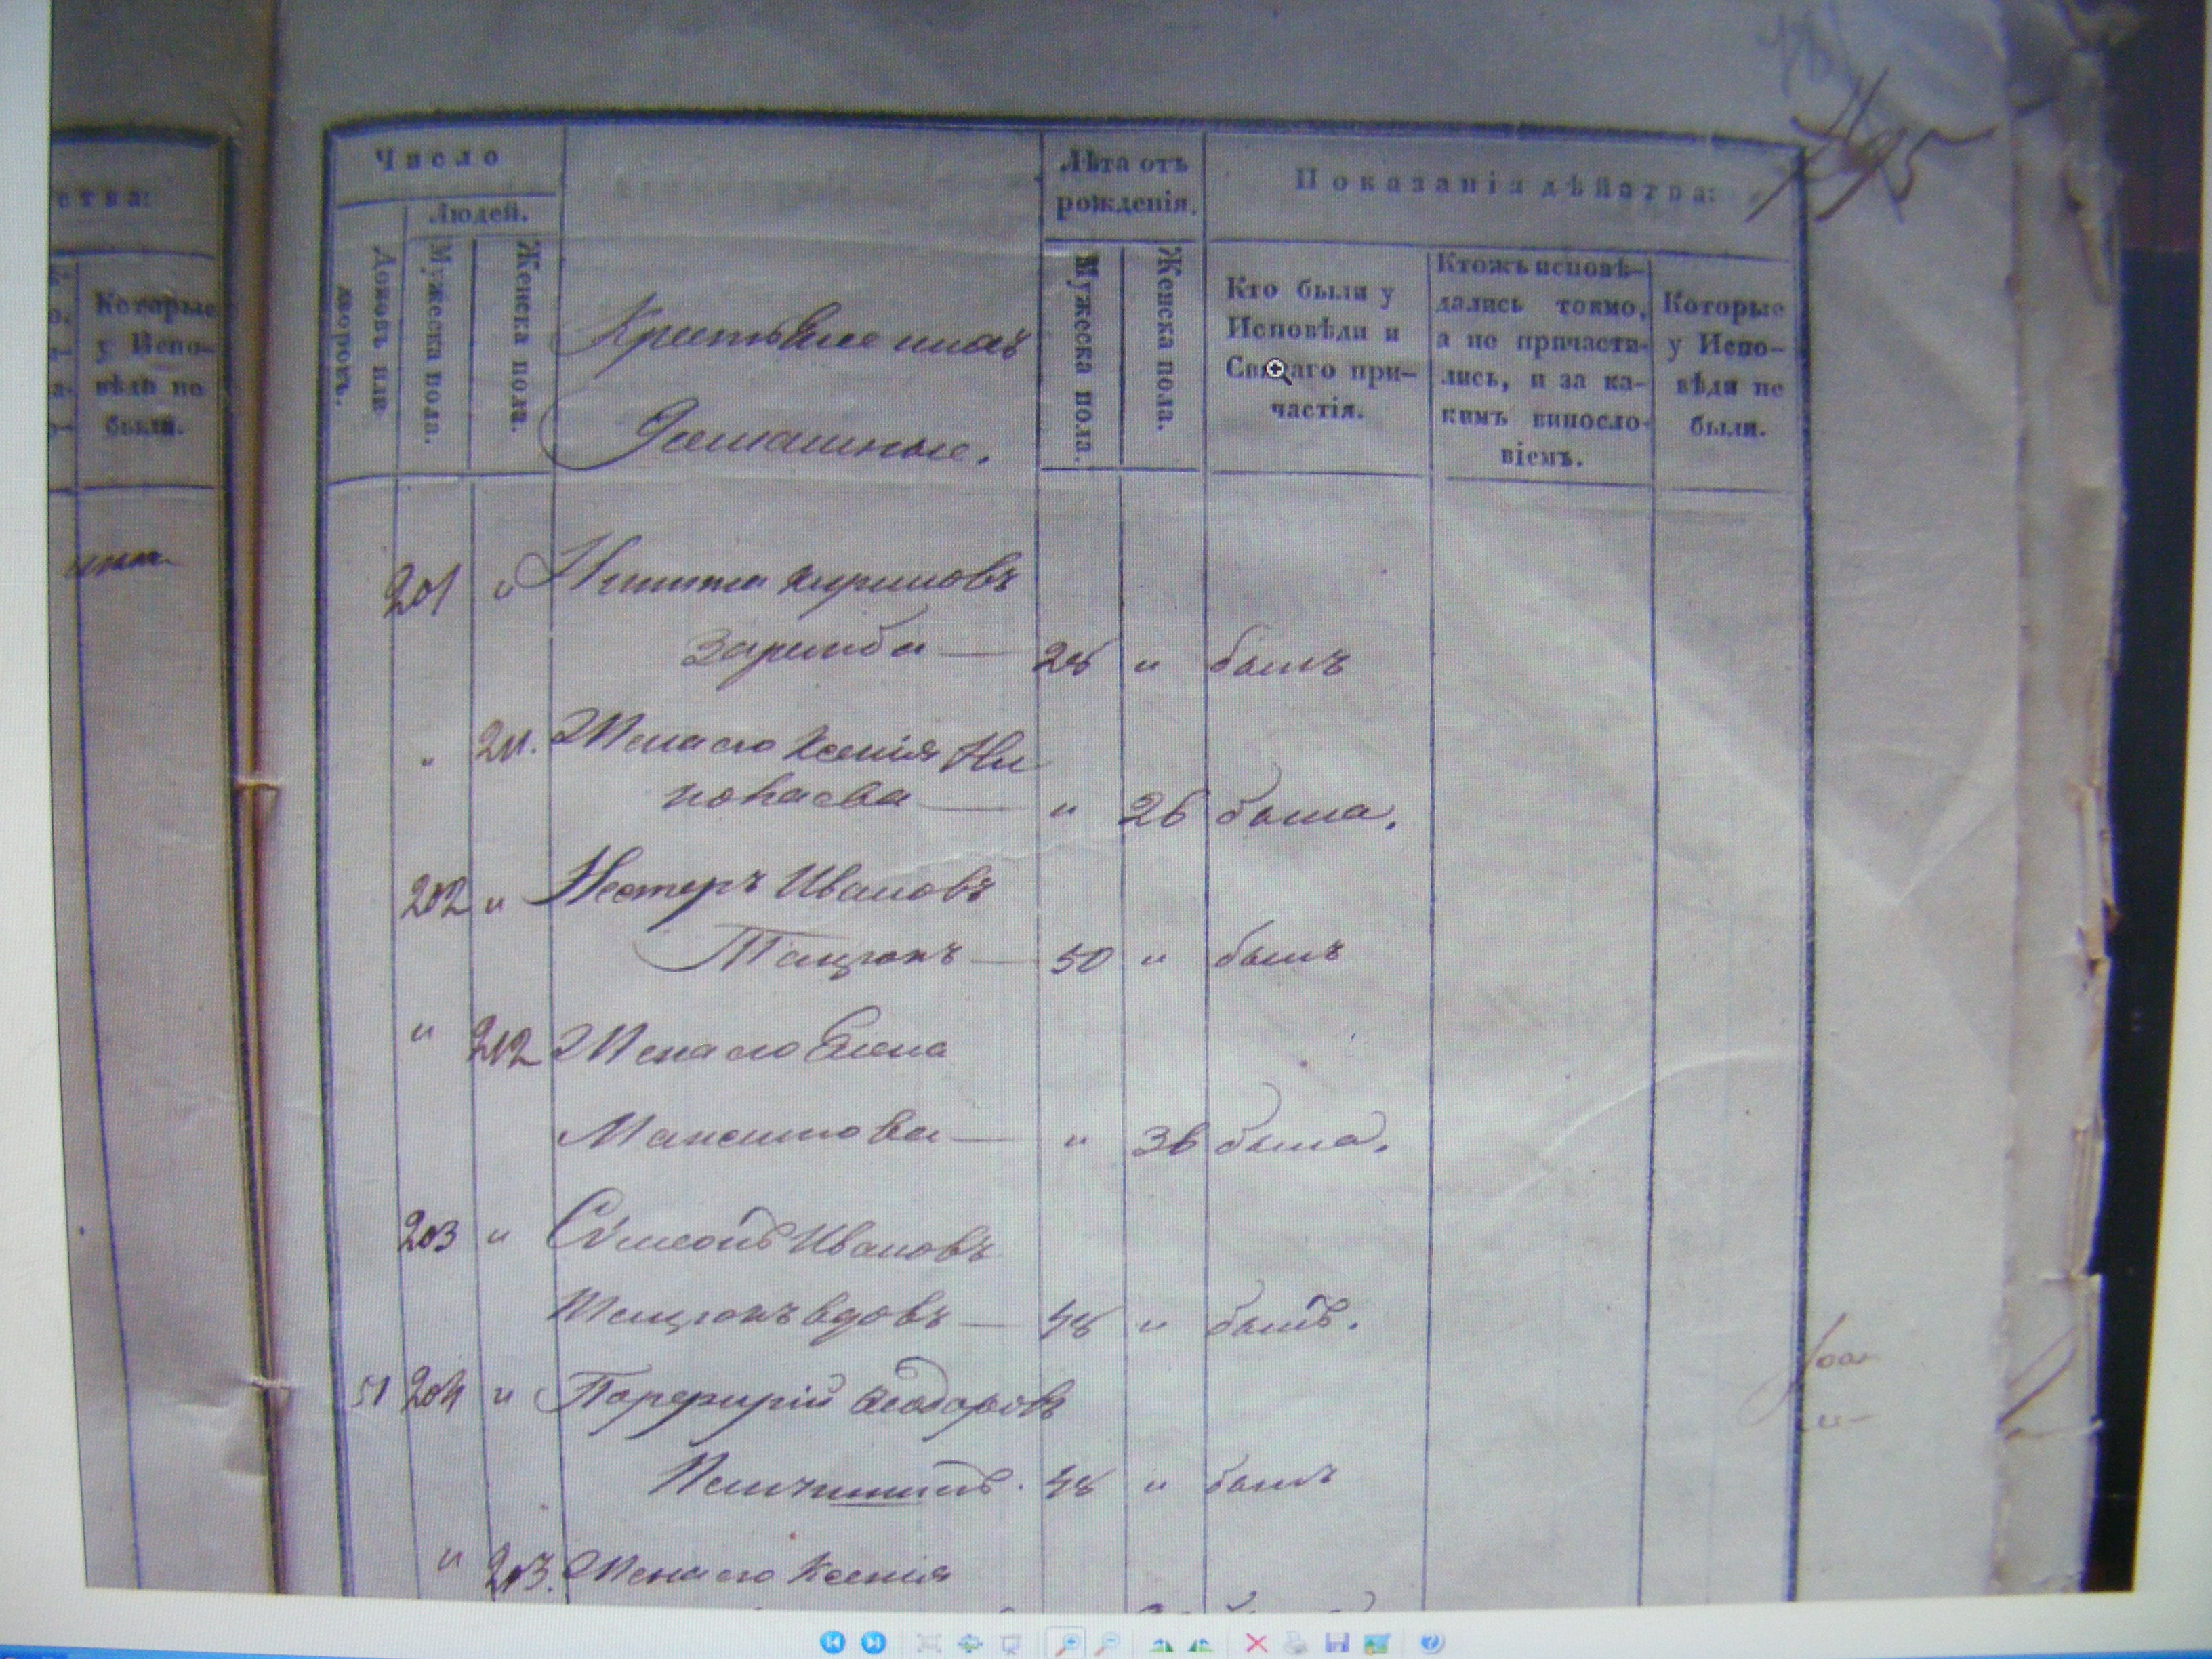 ства:
Которые
у Испо-
вѣди не
были.
195
Число
Людей.
Домовъ или
дворовъ.
Мужеска пола.
Женска пола.
Крестьяне и ихъ
Домашные.
Лѣта отъ
рожденія.
Мужеска пола.
Женска пола.
Показанія дѣйства:
Кто были у
Исповѣди и
Святаго при-
частія.
Ктожъ исповѣ-
дались токмо,
а не причасти-
лись, и за ка-
кимъ винословіемъ.
Которые
у Испо-
вѣди не
были.
201 " Никита Кириловъ
Заремба — 28 " былъ
" 211. Жена его Ксенія Ни
кольаева — " 26 была.
202 " Нестеръ Ивановъ
Тацюкъ — 50 " былъ
" 212 Жена его Елена
Максимова — " 36 была.
203 " Сѵмеонъ Ивановъ
Тацюкъ вдовъ — 48 " былъ.
51 204 " Порфирій Ѳеодоровъ
48 " былъ
" 213. Жена его Ксенія